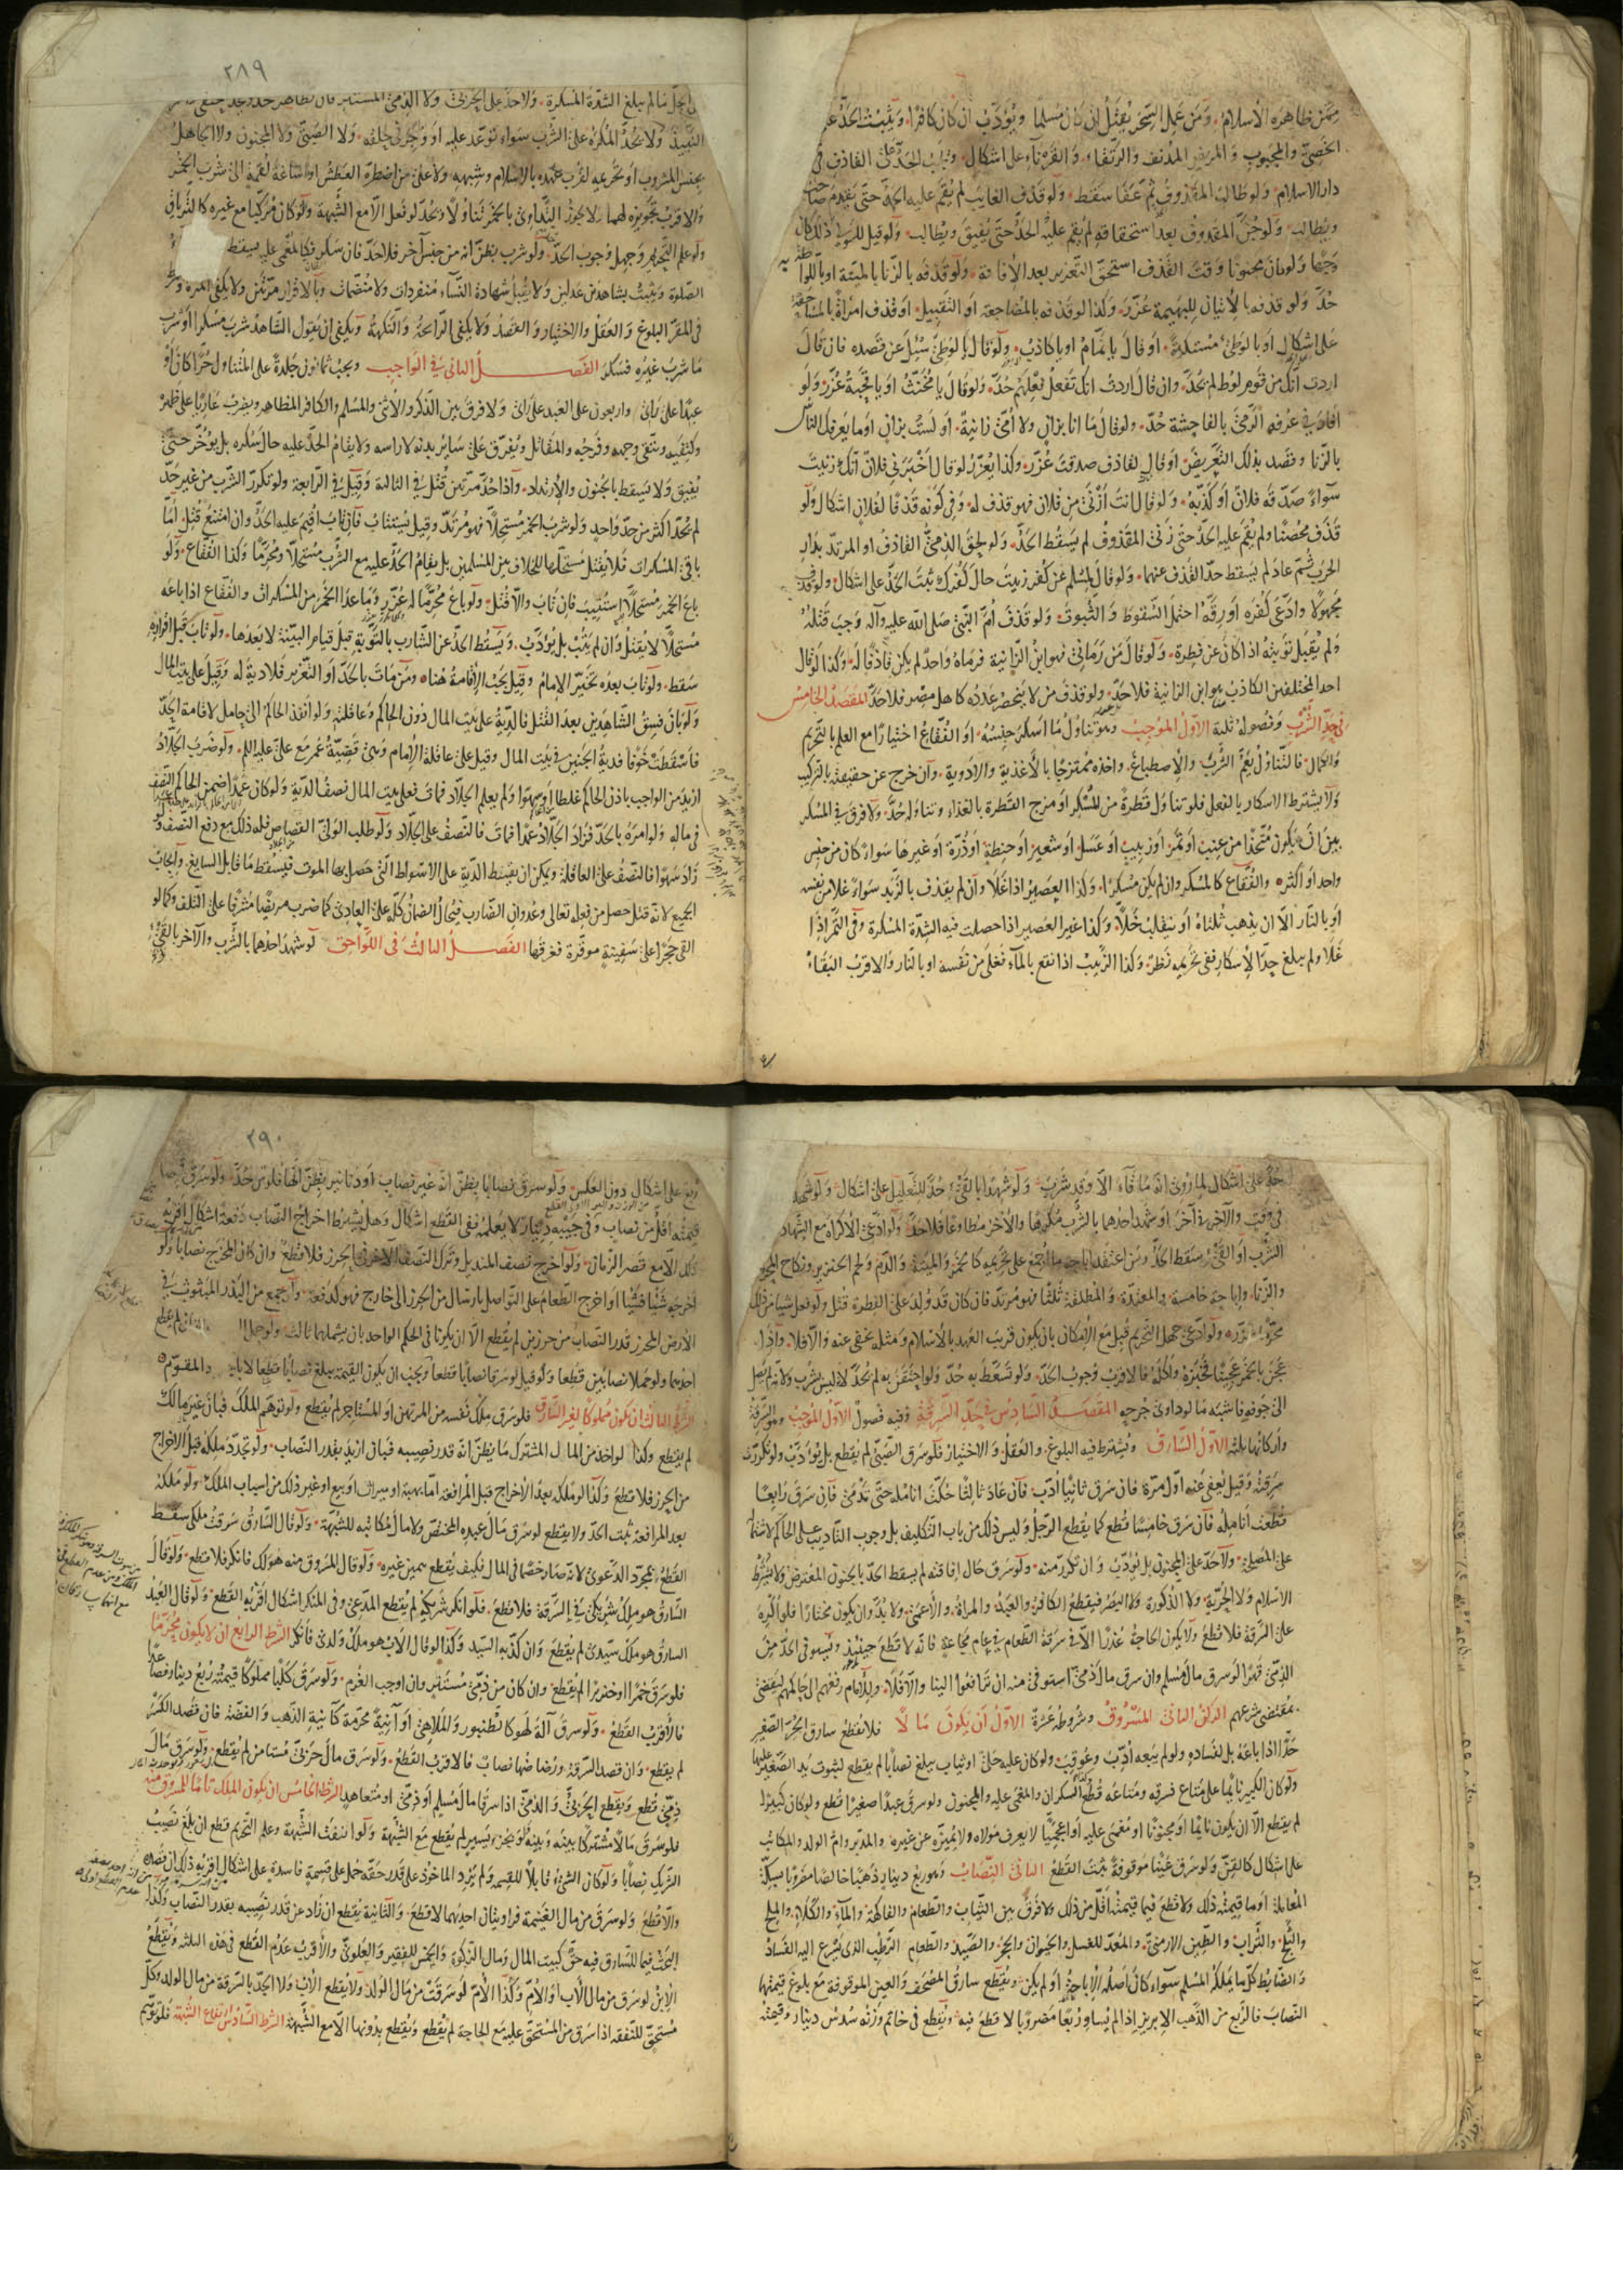 ممن ظاهره الاسلام ومن عمل السحر يقتل ان كان مسلما ويؤدب ان كان كافرا ويثبت الحد على
الخصي والمجبوب والمريض المدنف والرتقاء والقرناء على اشكال ويجب الحد على القاذف في
دار الاسلام ولو طالب المقذوف ثم عفا سقط ولو قذف الغايب لم يقم عليه الحد حتى يقدم صاحبه
ويطالب ولو جن المقذوف بعد استحقاقه لم يقم عليه الحد حتى يفيق ويطالب ولو قيل للولي ذلك كان
وجها ولو كان مجنونا وقت القذف استحق التعزير بعد الافاقة ولو قذفه بالزنا بالميتة او باللواط به
حد ولو قذفه بالاتيان للبهيمة عزر وكذا لو قذفه بالمضاجعة او التقبيل او قذف امراة بالمساحقة
على اشكال او بالوطئ مستكرهة او قال يا نمام او يا كاذب ولو قال يا لوطي سئل عن قصده فان قال
اردت انك من قوم لوط لم يحد وان قال اردت انك تفعل فعلهم حد ولو قال يا مخنث او يا قحبة عزر ولو
افاد في عرفه الرمي بالفاحشة حد ولو قال ما انا بزان ولا امي زانية او لست بزان او ما يعرفك الناس
بالزنا وقصد بذلك التعريض او قال لقاذف صدقت عزر وكذا يعزر لو قال اخبرني فلان انك زنيت
سواء صدقه فلان او كذبه ولو قال انت ازنى من فلان فهو قذف له وفي كونه قذفا لفلان اشكال ولو
قذف محصنا ولم يقم عليه الحد حتى زنى المقذوف لم يسقط الحد ولو لحق الذمي القاذف او المرتد بدار
الحرب ثم عاد لم يسقط حد القذف عنهما ولو قال لمسلم عن كفر زنيت حال كفرك ثبت الحد على اشكال ولو قذف
مجهولا وادعى كفره او رقه احتمل السقوط والثبوت ولو قذف ام النبي صلى الله عليه وآله وجب قتله
ولم يقبل توبته اذا كان عن فطرة ولو قال من رماني فهو ابن الزانية فرماه واحد لم يكن قاذفا له وكذا لو قال
احد المختلفين الكاذب هو ابن الزانية فلا حد ولو قذف من لا ينحصر عدده كاهل مصر فلا حد المقصد الخامس
في حد الشرب وفصوله ثلثة الاول الموجب وهو تناول ما اسكر جنسه او الفقاع اختيارا مع العلم بالتحريم
والكمال فالتناول يعم الشرب والاصطباغ واخذه ممتزجا بالاغذية والادوية وان خرج عن حقيقته بالتركيب
ولا يشترط الاسكار بالفعل فلو تناول قطرة من المسكر او مزج القطرة بالغذاء وتناوله حد ولا فرق في المسكر
بين ان يكون متخذا من عنب او تمر او زبيب او عسل او شعير او حنطة او ذرة او غيرها سواء كان من جنس
واحد او اكثر والفقاع كالمسكر وان لم يكن مسكرا وكذا العصير اذا غلا وان لم يقذف بالزبد سواء غلا من نفسه
او بالنار الا ان يذهب ثلثاه او ينقلب خلا وكذا غير العصير اذا حصلت فيه الشدة المسكرة وفي التمر اذا
غلا ولم يبلغ حد الاسكار ففي تحريمه نظر وكذا الزبيب اذا نقع بالماء فغلى من نفسه او بالنار والاقرب البقاء
٢٨٩
على الحل ما لم يبلغ الشدة المسكرة ولا حد على الحربي ولا الذمي المستتر فان تظاهر حد
النبيذ ولا يحد المكره على الشرب سواء توعد عليه او وجر في حلقه ولا الصبي ولا المجنون ولا الجاهل
بجنس المشروب او تحريمه لقرب عهده بالاسلام وشبهه ولا على من اضطره العطش او اساغة لقمة الى شرب الخمر
والاقرب تجويزه لهما ولا يجوز التداوي بالخمر تناولا ويحد لو فعل الا مع الشبهة ولو كان مركبا مع غيره كالترياق
ولو علم التحريم وجهل وجوب الحد ولو شرب بظن انه من جنس آخر فلا حد فان سكر فكالمغمى عليه يسقط
الصلوة ويثبت بشاهدين عدلين ولا يقبل شهادة النساء منفردات ولا منضمات وبالاقرار مرتين ولا يكفي المرة
في المقر البلوغ والعقل والاختيار والقصد ولا يكفي الرائحة والنكهة ويكفي ان يقول الشاهد شرب مسكرا او شرب
ما شرب غيره فسكر الفصل الثاني في الواجب ويجب ثمانون جلدة على المتناول حرا كان او
عبدا على راي واربعون على العبد على راي ولا فرق بين الذكر والانثى والمسلم والكافر المتظاهر ويضرب عاريا على ظهره
وكتفيه ويتقى وجهه وفرجه والمقاتل ويفرق على ساير بدنه لا راسه ولا يقام الحد عليه حال سكره بل يؤخر حتى
يفيق ولا يسقط بالجنون والارتداد واذا حد مرتين قتل في الثالثة وقيل في الرابعة ولو تكرر الشرب من غير حد
لم يحد اكثر من حد واحد ولو شرب الخمر مستحلا فهو مرتد وقيل يستتاب فان تاب اقيم عليه الحد وان امتنع قتل اما
باقي المسكرات فلا يقتل مستحلها للخلاف بين المسلمين بل يقام الحد عليه مع الشرب مستحلا ومحرما وكذا الفقاع ولو
باع الخمر مستحلا استتيب فان تاب والا قتل ولو باع محرما له عزر وما عدا الخمر من المسكرات والفقاع اذا باعه
مستحلا لا يقتل وان لم يتب بل يؤدب ويسقط الحد عن الشارب بالتوبة قبل قيام البينة لا بعدها ولو تاب قبل اقراره
سقط ولو تاب بعده تخير الامام وقيل يجب الاقامة هنا ومن مات بالحد او التعزير فلا دية له وقيل على بيت المال
ولو بان فسق الشاهدين بعد القتل فالدية على بيت المال دون الحاكم وعاقلته ولو انفذ الحاكم الى حامل لاقامة الحد
فاسقطت خوفا فدية الجنين في بيت المال وقيل على عاقلة الامام وهي قضية عمر مع علي عليه السلم ولو ضرب الحداد
ازيد من الواجب باذن الحاكم غلطا او سهوا ولم يعلم الجلاد فمات فعلى بيت المال نصف الدية ولو كان عمدا ضمن الحاكم النصف
في ماله ولو امره بالحد فزاد الجلاد عمدا فمات فالنصف على الجلاد ولو طلب الولي القصاص فله ذلك مع دفع النصف ولو
زاد سهوا فالنصف على العاقلة ويمكن ان يقسط الدية على الاسواط التي حصل بها الموت فيسقط ما قابل السايغ وايجاب
الجميع لانه قتل حصل من فعله تعالى وعدوان الضارب فيحال الضمان كله على العادي كما ضرب مريضا مشرفا على التلف وكما لو
القى حجرا على سفينة موقرة فغرقها الفصل الثالث في اللواحق لو شهد احدهما بالشرب والآخر بالقئ
حد على اشكال لما روي انه ما قاء الا وقد شرب ولو شهدا بالقئ حد للتعليل على اشكال ولو شهد
في وقت والآخر في آخر او شهد احدهما بالشرب مكرها والاخر مطاوعا فلا حد ولو ادعى الاكراه مع الشهادة
الشرب او القئ سقط الحد ومن اعتقد اباحة ما اجمع على تحريمه كالخمر والميتة والدم ولحم الخنزير ونكاح المحرم
والزنا واباحة خامسة والمعتدة والمطلقة ثلثا فهو مرتد فان كان قد ولد على الفطرة قتل ولو فعل شيئا من ذلك
محرما عزر ولو ادعى جهل التحريم قبل مع الامكان بان يكون قريب العهد بالاسلام ومثله خفي عنه والا فلا واذا
عجن بالخمر عجينا فخبزه واكله فالاقرب وجوب الحد ولو تسعط به حد ولو احتقن به لم يحد لانه ليس بشرب ولانه لم يصل
الى جوفه فاشبه ما لو داوى جرحه المقصد السادس في حد السرقة وفيه فصول الاول الموجب وهو السرقة
واركانها ثلثة الاول السارق ويشترط فيه البلوغ والعقل والاختيار فلو سرق الصبي لم يقطع بل يؤدب ولو تكررت
سرقته وقيل يعفى عنه اول مرة فان سرق ثانيا ادب فان عاد ثالثا حكت انامله حتى تدمى فان سرق رابعا
قطعت انامله فان سرق خامسا قطع كما يقطع الرجل وليس ذلك من باب التكليف بل وجوب التاديب على الحاكم لاشتماله
على المصلحة ولا حد على المجنون بل يؤدب وان تكرر منه ولو سرق حال افاقته لم يسقط الحد بالجنون المعترض ولا يشترط
الاسلام ولا الحرية ولا الذكورة ولا البصر فيقطع الكافر والعبد والمراة والاعمى ولا بد وان يكون مختارا فلو اكره
على السرقة فلا قطع ولا يكون الحاجة عذرا الا في سرقة الطعام في عام مجاعة فانه لا قطع حينئذ ويستوفى الحد من
الذمي قهرا لو سرق مال مسلم وان سرق مال ذمي استوفي منه ان ترافعوا الينا والا فلا وللامام رفعهم الى حاكمهم ليقضي
بمقتضى شرعهم الركن الثاني المسروق وشروطه عشرة الاول ان يكون مالا فلا يقطع سارق الحر الصغير
حدا اذا باعه بل لفساده ولو لم يبعه ادب وعوقب ولو كان عليه حلي او ثياب يبلغ نصابا لم يقطع لثبوت يد الصغير عليها
ولو كان الكبير نايما على متاع فسرقه ومتاعه قطع وكذا السكران والمغمى عليه والمجنون ولو سرق عبدا صغيرا قطع ولو كان كبيرا
لم يقطع الا ان يكون نايما او مجنونا او مغمى عليه او اعجميا لا يعرف مولاه ولا يميزه عن غيره والمدبر وام الولد والمكاتب
على اشكال كالقن ولو سرق عينا موقوفة ثبت القطع الثاني النصاب وهو ربع دينار ذهبا خالصا مضروبا بسكة
المعاملة او ما قيمته ذلك ولا قطع فيما قيمته اقل من ذلك ولا فرق بين الثياب والطعام والفاكهة والماء والكلاء والملح
والثلج والتراب والطين الارمني والمعد للغسل والحيوان والحجر والصيد والطعام الرطب الذي يسرع اليه الفساد
والضابط كل ما يملكه المسلم سواء كان اصله الاباحة او لم يكن ويقطع سارق المصحف والعين الموقوفة مع بلوغ قيمتها
النصاب فالربع من الذهب الابريز اذا لم يساو ربعا مضروبا لا قطع فيه ويقطع في خاتم وزنه سدس دينار وقيمته
٢٩٠
ربع على اشكال دون العكس ولو سرق نصابا يظن انه غير نصاب او دنانير يظن انها فلوس حد ولو سرق
قيمته اقل من نصاب وفي جيبه دينار لا يعلمه ففي القطع اشكال وهل يشترط اخراج النصاب دفعة اشكال اقربه
ذلك الا مع قصر الزمان ولو اخرج نصف المنديل وترك النصف الآخر في الحرز فلا قطع وان كان المخرج نصابا ولو
اخرجه شيئا فشيئا او اخرج الطعام على التواصل بارسال من الحرز الى خارج فهو كدفعة ولو جمع من البذر المبثوث في
الارض المحرز قدر النصاب من حرزين لم يقطع الا ان يكونا في الحكم الواحد بان يشملهما ثالث ولو حمل
احدهما ولو حملا نصابين قطعا ولو قيل لو سرقا نصابا قطعا ويجب ان يكون القيمة يبلغ نصابا قطعا لا باجتهاد المقوم
الشرط الثالث ان يكون مملوكا لغير السارق فلو سرق ملك نفسه من المرتهن او المستاجر لم يقطع ولو توهم الملك فبان غير مالك
لم يقطع وكذا لو اخذ من المال المشترك ما يظن انه قدر نصيبه فبان ازيد بقدر النصاب ولو تجدد ملكه قبل الاخراج
من الحرز فلا قطع وكذا لو ملكه بعد الاخراج قبل المرافعة اما بهبة او ميراث او بيع او غير ذلك من اسباب الملك ولو ملكه
بعد المرافعة ثبت الحد ولا يقطع لو سرق مال عبده المختص ولا مال مكاتبه للشبهة ولو قال السارق سرقت ملكي سقط
القطع بمجرد الدعوى لانه صار خصما في المال فكيف يقطع بيمين غيره ولو قال المسروق منه هو لك فانكر فلا قطع ولو قال
السارق هو ملك شريكي في السرقة فلا قطع فلو انكر شريكه لم يقطع المدعي وفي المنكر اشكال اقربه القطع ولو قال العبد
السارق هو ملك سيدي لم يقطع وان كذبه السيد وكذا لو قال الابن هو ملك والدي فانكر الشرط الرابع ان لا يكون محرما
فلو سرق خمرا او خنزيرا لم يقطع وان كان من ذمي مستتر وان اوجب الغرم ولو سرق كلبا مملوكا قيمته ربع دينار فصاعدا
فالاقرب القطع ولو سرق آلة لهو كالطنبور والملاهي او آنية محرمة كآنية الذهب والفضة فان قصد الكسر
لم يقطع وان قصد السرقة ورضاضها نصاب فالاقرب القطع ولو سرق مال حربي مستامن لم يقطع ولو سرق مال
ذمي قطع ويقطع الحربي والذمي اذا سرقا مال مسلم او ذمي او معاهد الشرط الخامس ان يكون الملك تاما للمسروق منه
فلو سرق مالا مشتركا بينه وبينه ولو بجزء يسير لم يقطع مع الشبهة ولو انتفت الشبهة وعلم التحريم قطع ان بلغ نصيب
الشريك نصابا ولو كان الشئ قابلا للقسمة ولم يزد الماخوذ على قدر حقه حمل على قسمة فاسدة على اشكال اقربه ذلك ان قصده
والا قطع ولو سرق من مال الغنيمة فروايتان احديهما لا قطع والثانية يقطع ان زاد عن قدر نصيبه بقدر النصاب وكذا
البحث فيما للسارق فيه حق كبيت المال ومال الزكوة والخمس للفقير والعلوي والاقرب عدم القطع في هذه الثلثة ويقطع
الابن لو سرق من مال الاب او الام وكذا الام لو سرقت من مال الولد ولا يقطع الاب ولا الجد بالسرقة من مال الولد وكل
مستحق للنفقة اذا سرق من المستحق عليه مع الحاجة لم يقطع ويقطع بدونها الا مع الشبهة الشرط السادس ارتفاع الشبهة فلو توهم